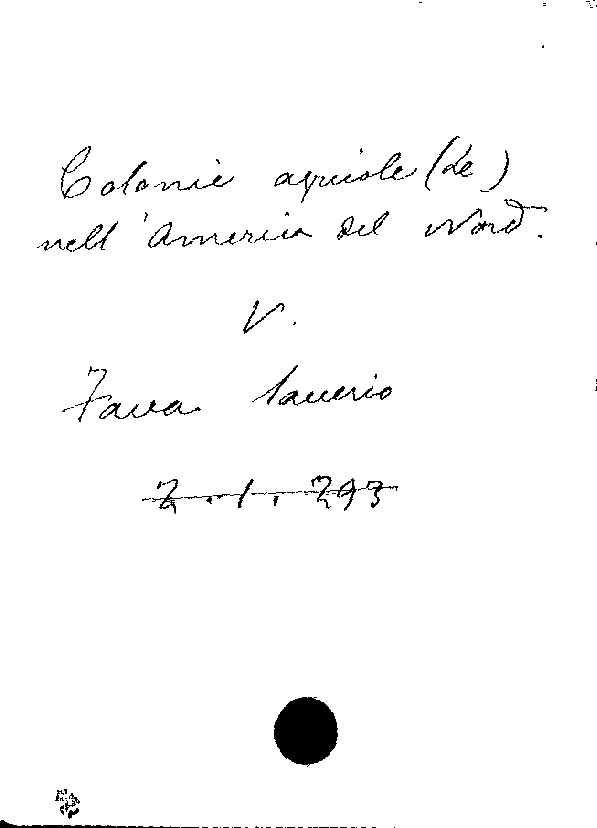 Colonie agricole (Le)
nell'America del Nord.
V.
Fava Saverio
2.1.293